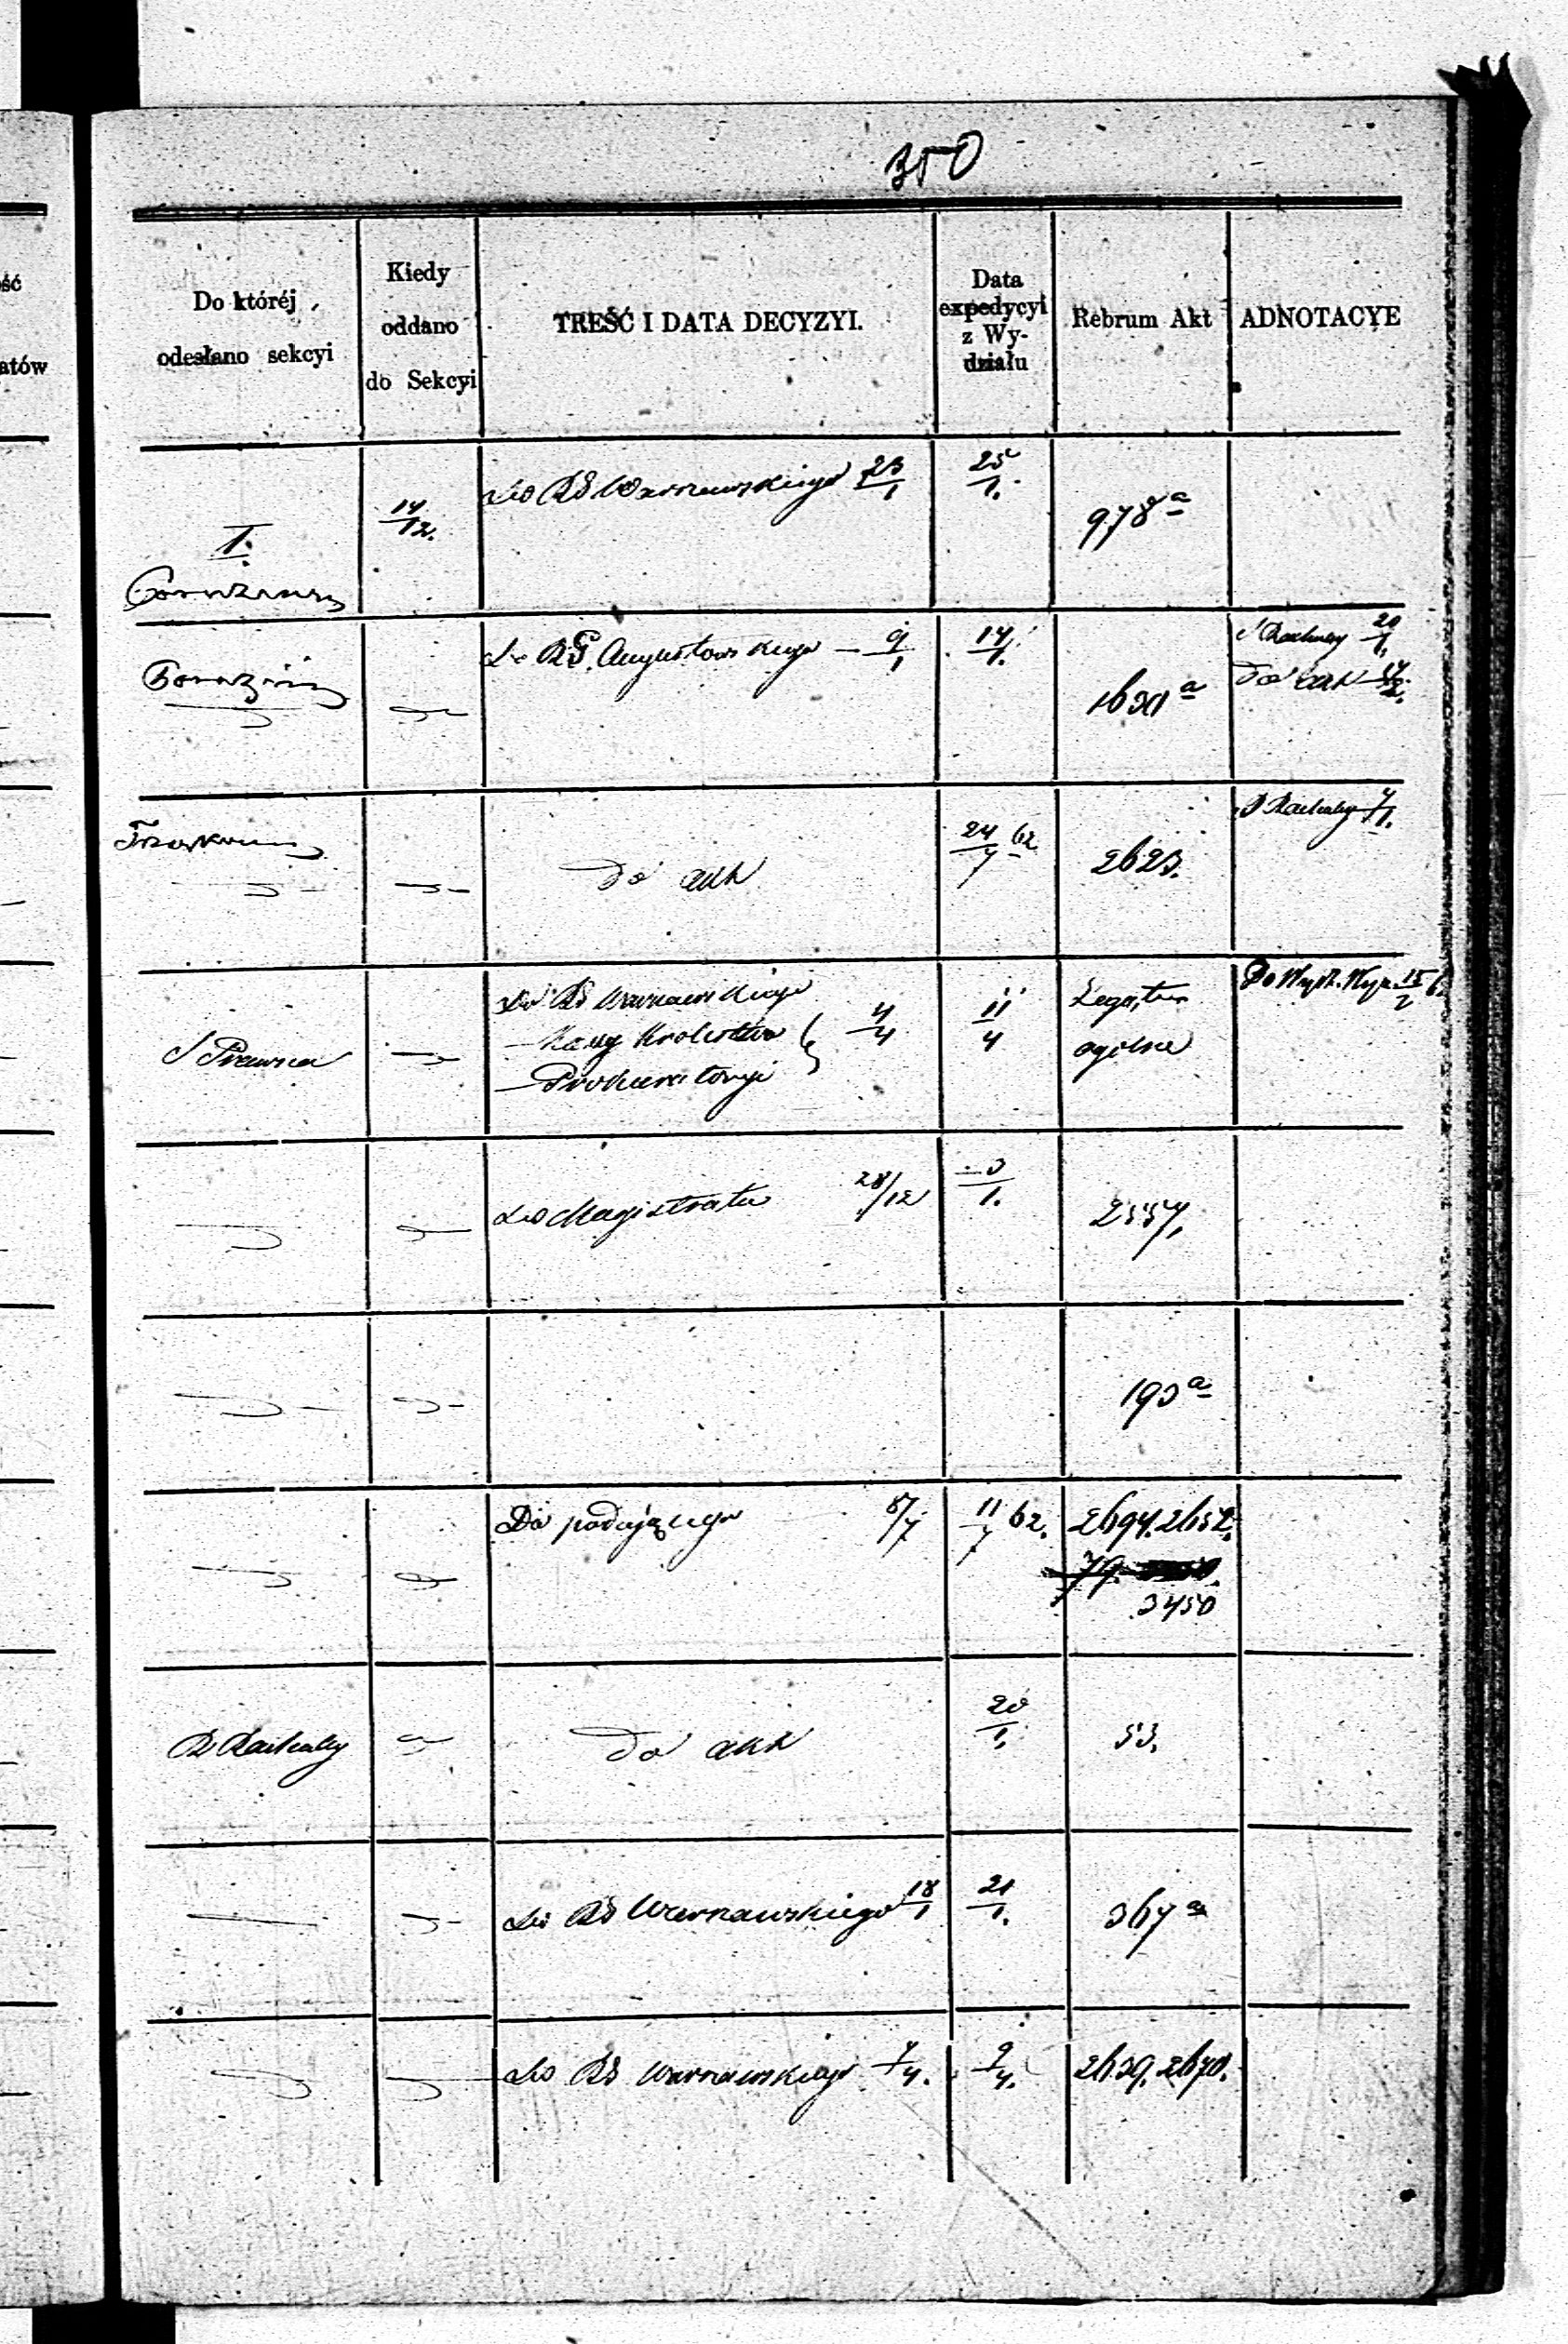 350
ść
atów
Do któréj
odesłano sekcyi
Kiedy
oddano
do Sekcyi
TREŚĆ I DATA DECYZYI.
Data
expedycyi
z Wy-
działu
Rebrum Akt
ADNOTACYE
I.
14/12.
Do RG Warszawskiego 23/1
25/1.
978 a
Do RG. Augustowskiego — 9/1
14/1.
1630 a
20/1.
do akt
do akt
24/7 62
2623.
S Rachuby 7/1.
S Prawna
Do RG Warszawskiego
— Kassy Królestwa
— Prokuratoryi
4/4
11/4
ogólne
Do Magistratu 28/12
3/1.
2557.
193 a
Do podającego 8/7
11/7 62.
2694. 2652.
79.
3450
R Rachuby
do akt
20/1.
53.
Do RG Warszawskiego 18/1
21/1.
367 a
Do RG Warszawskiego 7/4.
9/4.
2639. 2670.